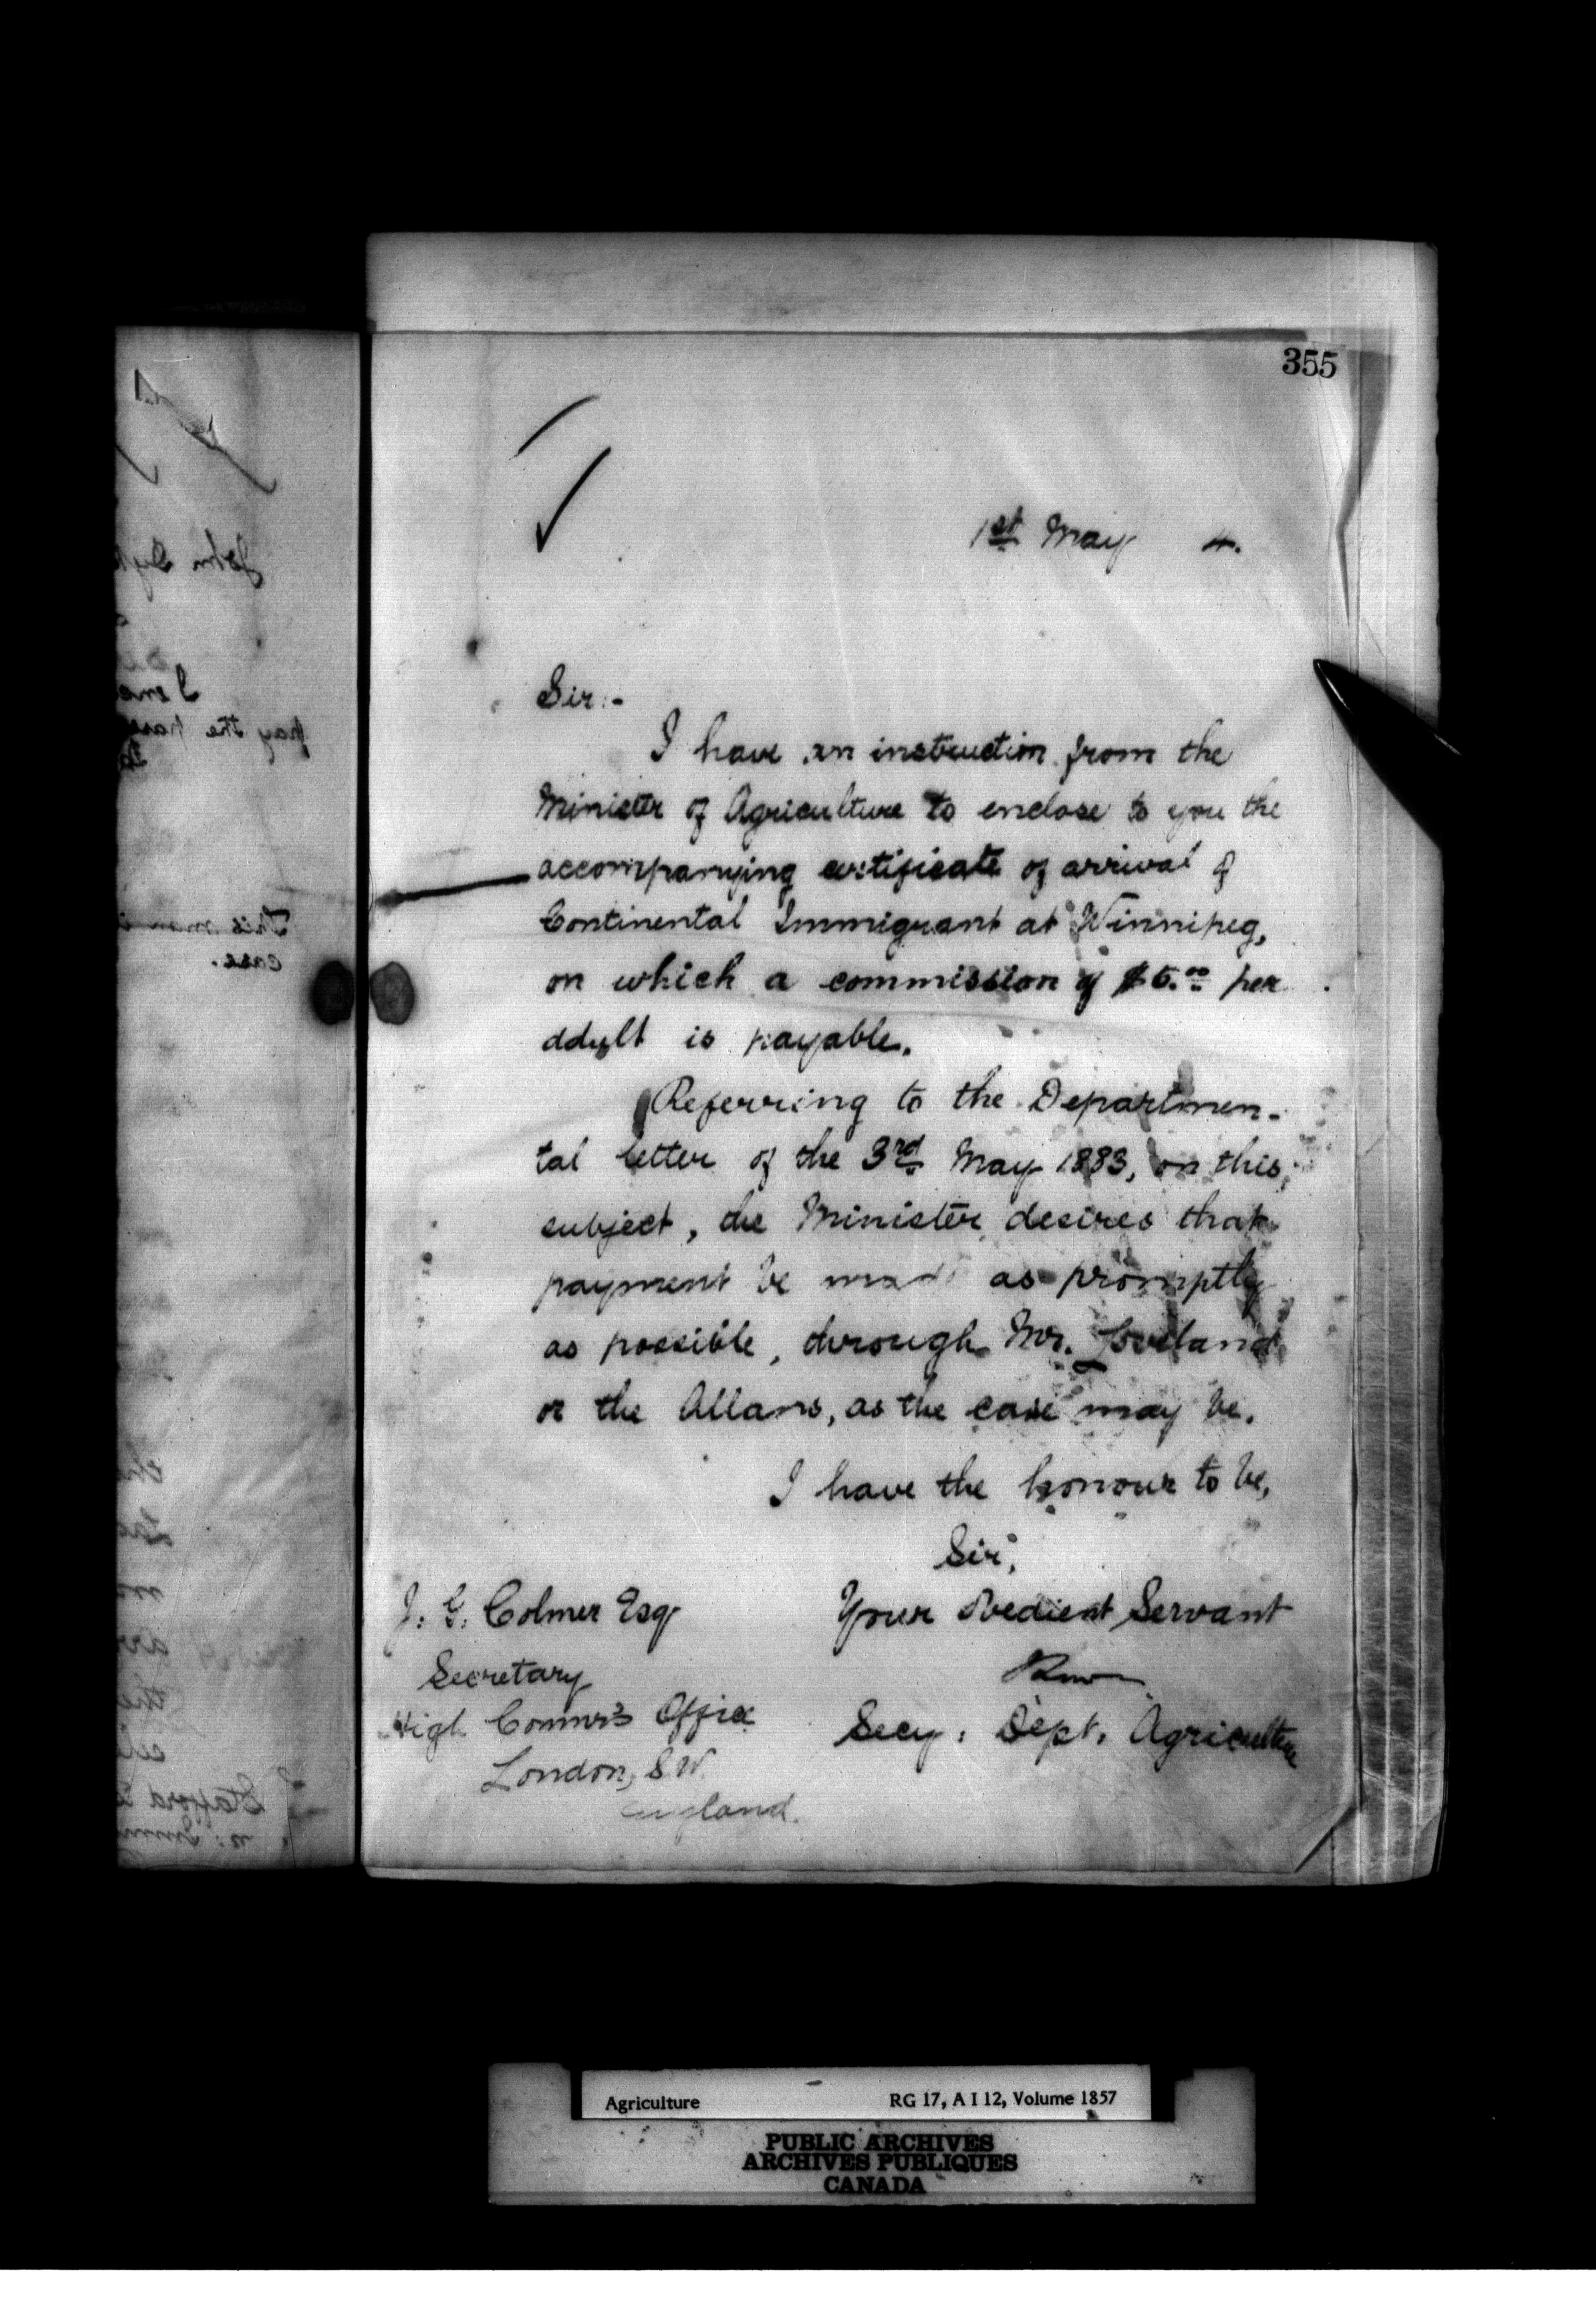 355
1st May 4.
Sir:-
I have an instruction from the
Minister of Agriculture to enclose to you the
accompanying certificate of arrival of
Continental Immigrant at Winnipeg,
on which a commission of $5.00 per
adult is payable.
Referring to the Departmen-
tal letter of the 3rd May 1883, on this
subject, the Minister desires that
payment be made as promptly
as possible, through Mr. Loveland
or the Allans, as the case may be.
I have the honour to be,
Sir,
Your Obedient Servant
Secy. Dept. Agriculture
J. G. Colmer Esq
Secretary
High Commr's Office
London, S.W.
England.
John
I
pay the
This man
case.
Stafford
Agriculture RG 17, A I 12, Volume 1857
PUBLIC ARCHIVES
ARCHIVES PUBLIQUES
CANADA